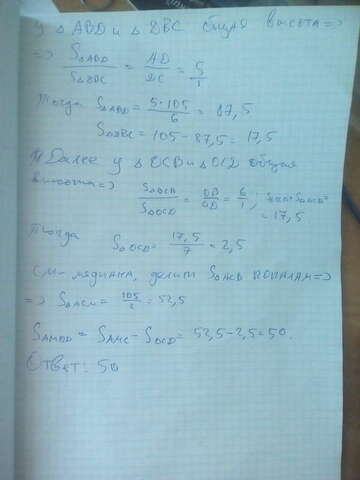 У △ABD и △DBC общая высота =>
=> S△ABD / S△DBC = AD / DC = 5 / 1
Тогда S△ABD = 5·105 / 6 = 87,5
S△DBC = 105 - 87,5 = 17,5
Далее у △OCB и △OCD общая
высота => S△OCB / S△OCD = OB / OD = 6 / 1 ;
= 17,5
Тогда S△OCD = 17,5 / 7 = 2,5
CM - медиана, делит S△ACB пополам =>
=> S△ACM = 105 / 2 = 52,5
SAMOD = SAMC - SOCD = 52,5 - 2,5 = 50.
Ответ: 50